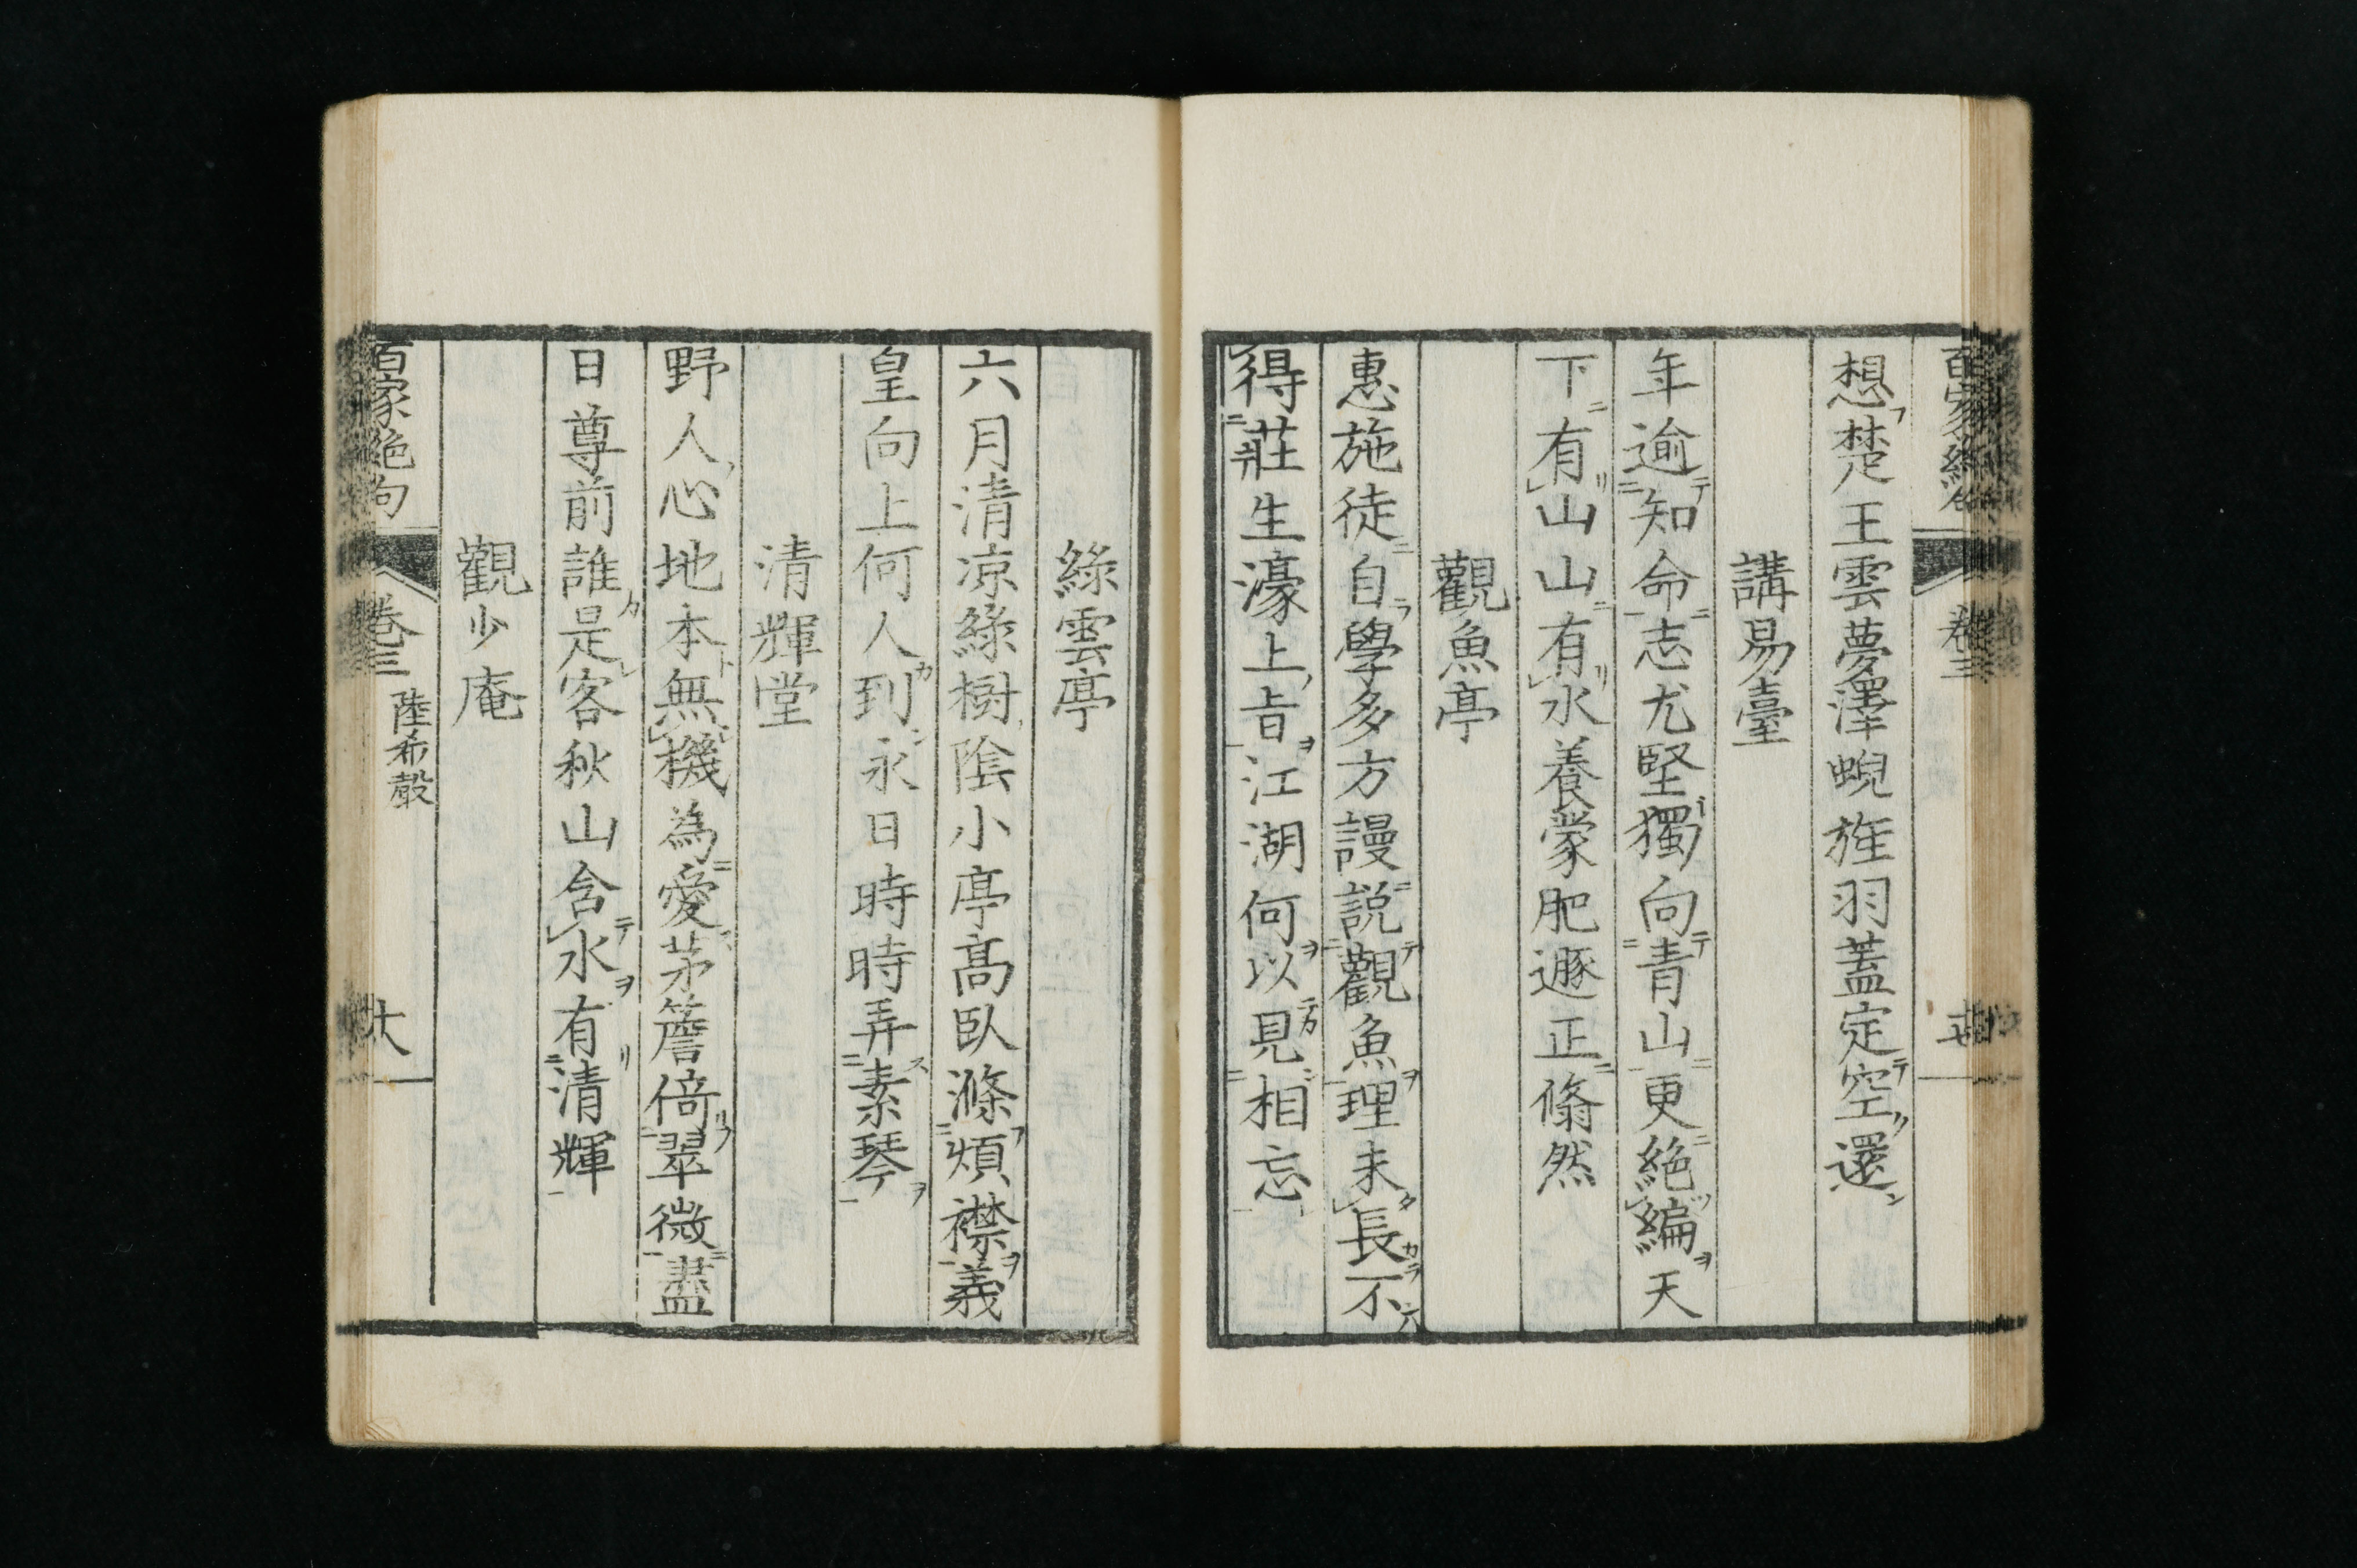 想楚王雲夢澤蜺旌羽蓋定空還
講易臺
年逾知命志尤堅獨向青山更絶編天
下有山山有水養蒙肥遯正翛然
觀魚亭
惠施徒自學多方謾説觀魚理未長不
得莊生濠上旨江湖何以見相忘
綠雲亭
六月清凉綠樹陰小亭高臥滌煩襟義
皇向上何人到永日時時弄素琴
清輝堂
野人心地本無機為愛茅簷倚翠微盡
日尊前誰是客秋山含水有清輝
觀少庵
百家絶句
卷三
陸希聲